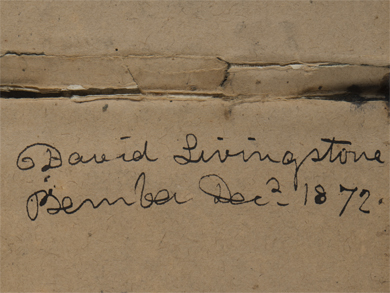 David Livingstone
Bemba Decr. 1872.